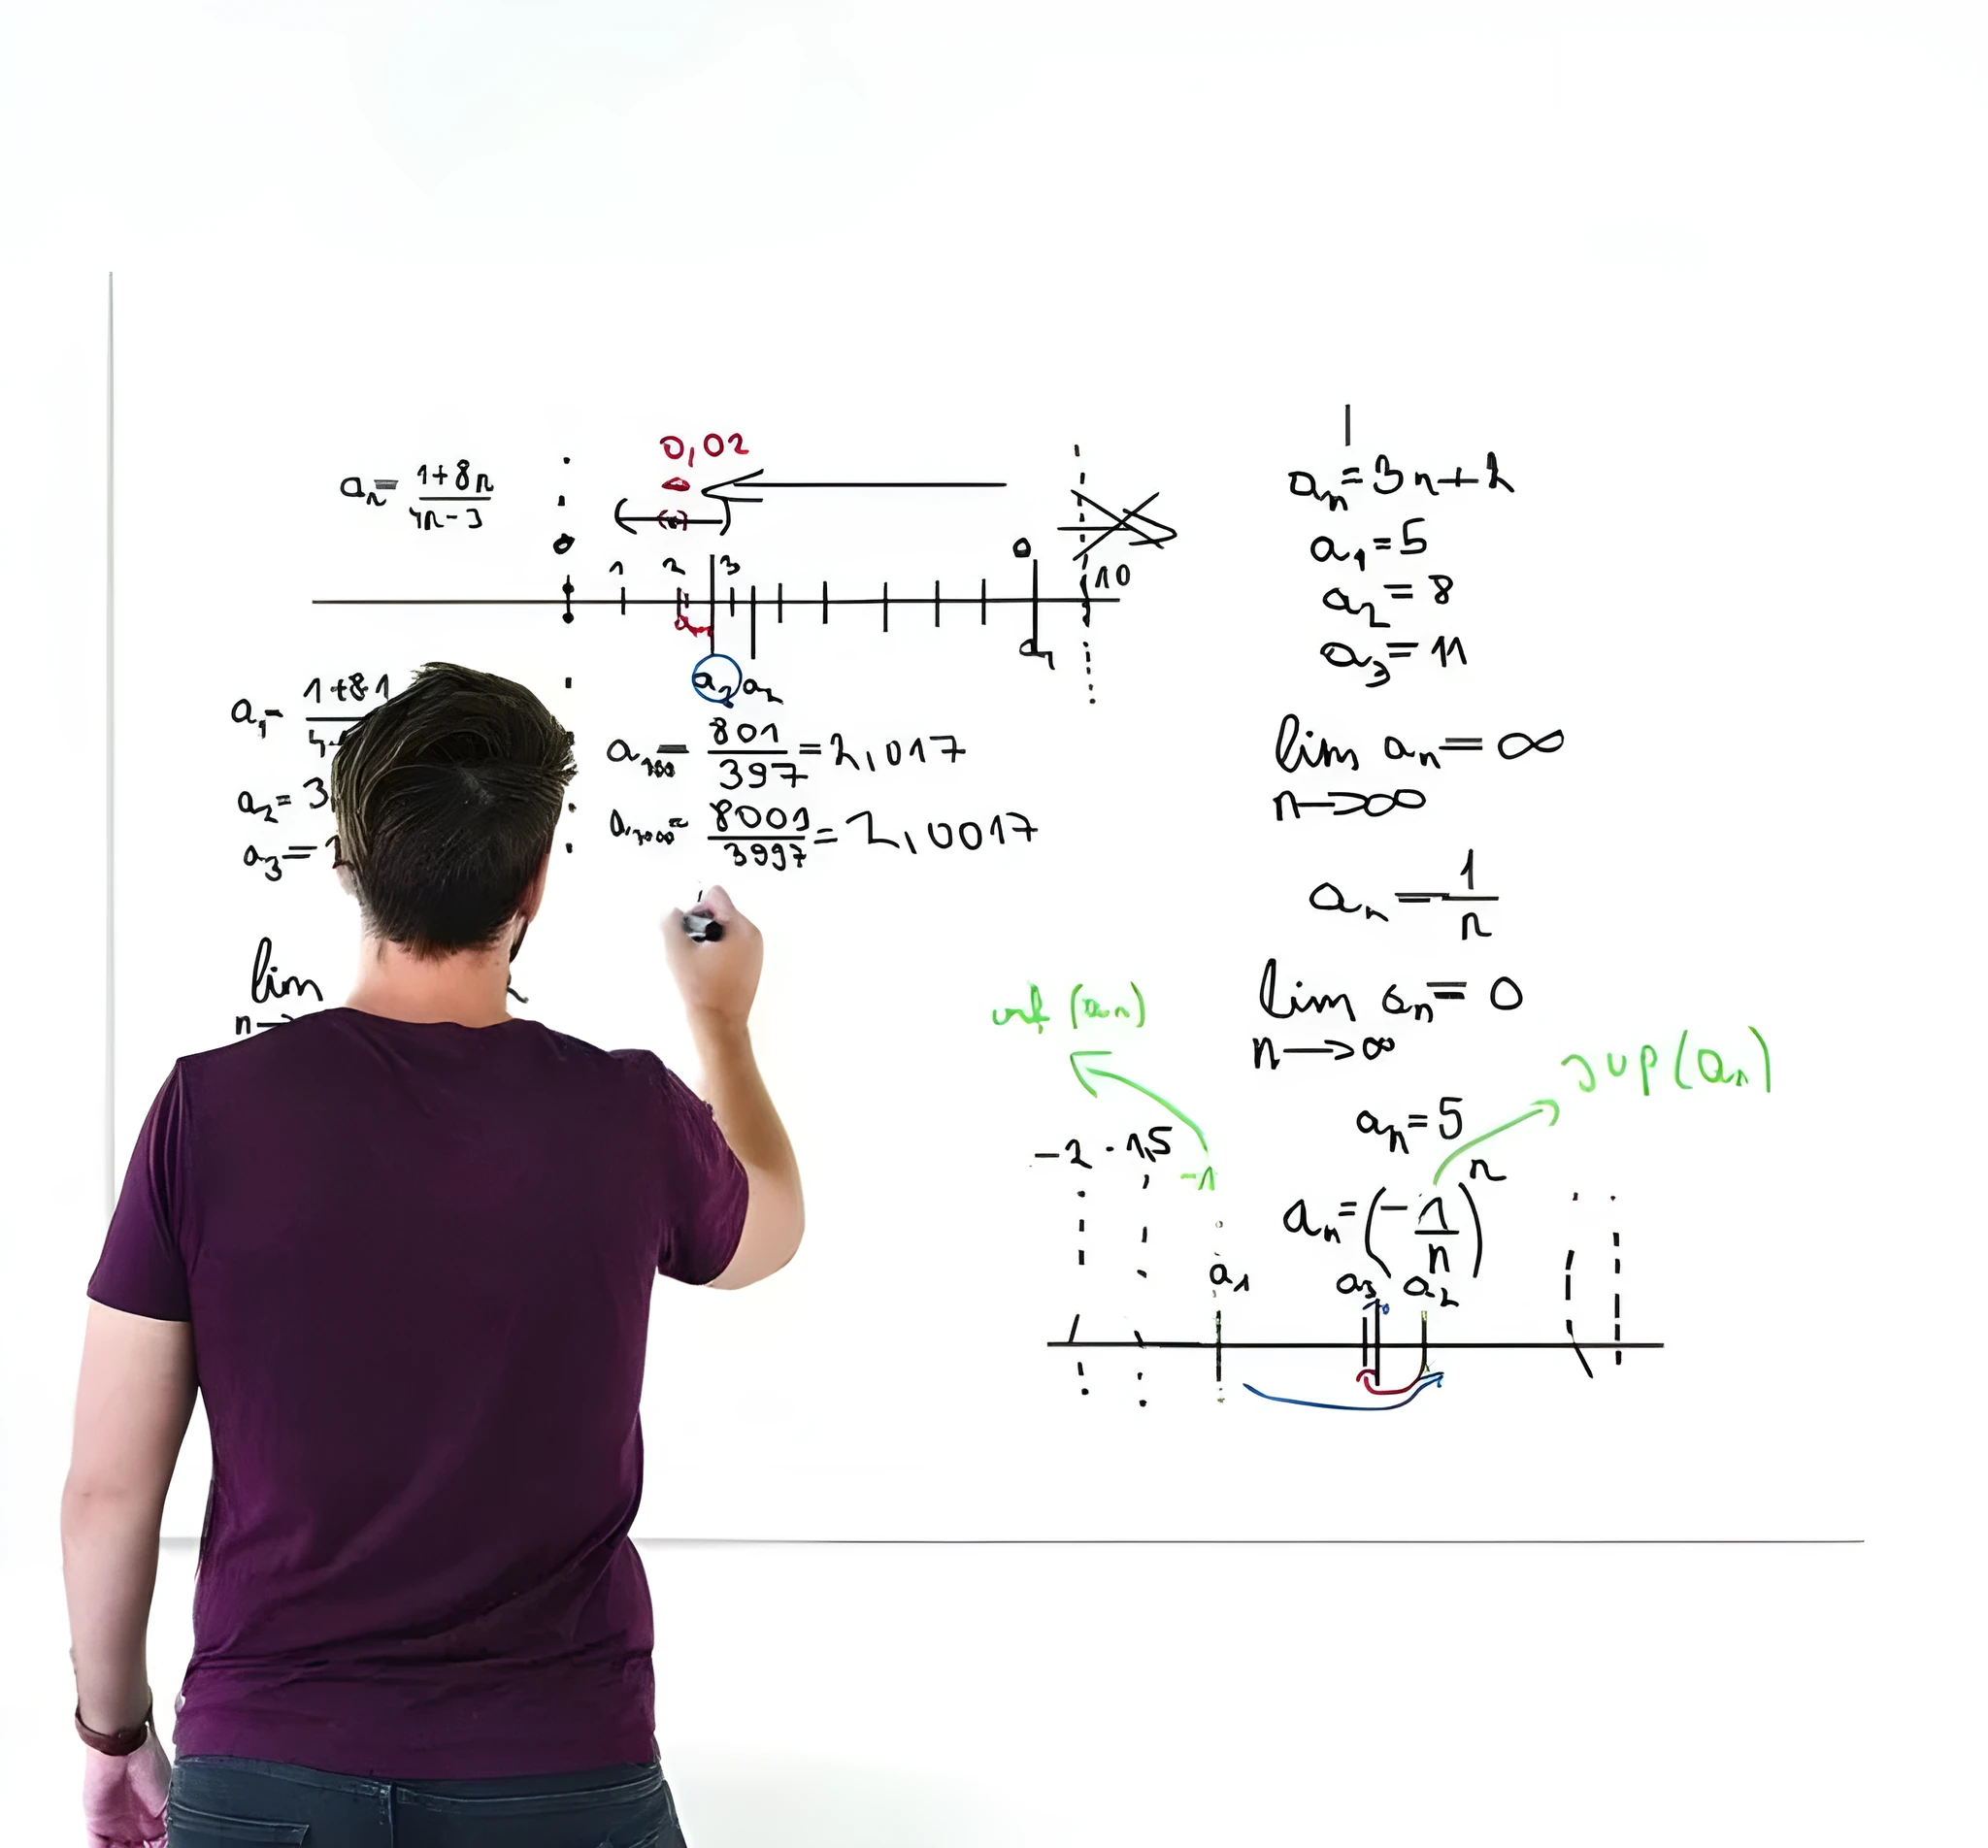 0,02
aₙ = (1+8n)/(4n-3)
0
1 2 3 9 10
a₁
a₃ a₂
a₁ = 1+8·1
a₁₀₀ = 801/397 = 2,017
a₂ = 3,
a₁₀₀₀ = 8001/3997 = 2,0017
a₃ =
lim
n→
aₙ = 3n+2
a₁ = 5
a₂ = 8
a₃ = 11
lim aₙ = ∞
n→∞
aₙ = 1/n
lim aₙ = 0
n→∞
inf (aₙ)
sup (aₙ)
aₙ = 5
-2 -1,5 -1
aₙ = (-1/n)ⁿ
a₁ a₃ a₂